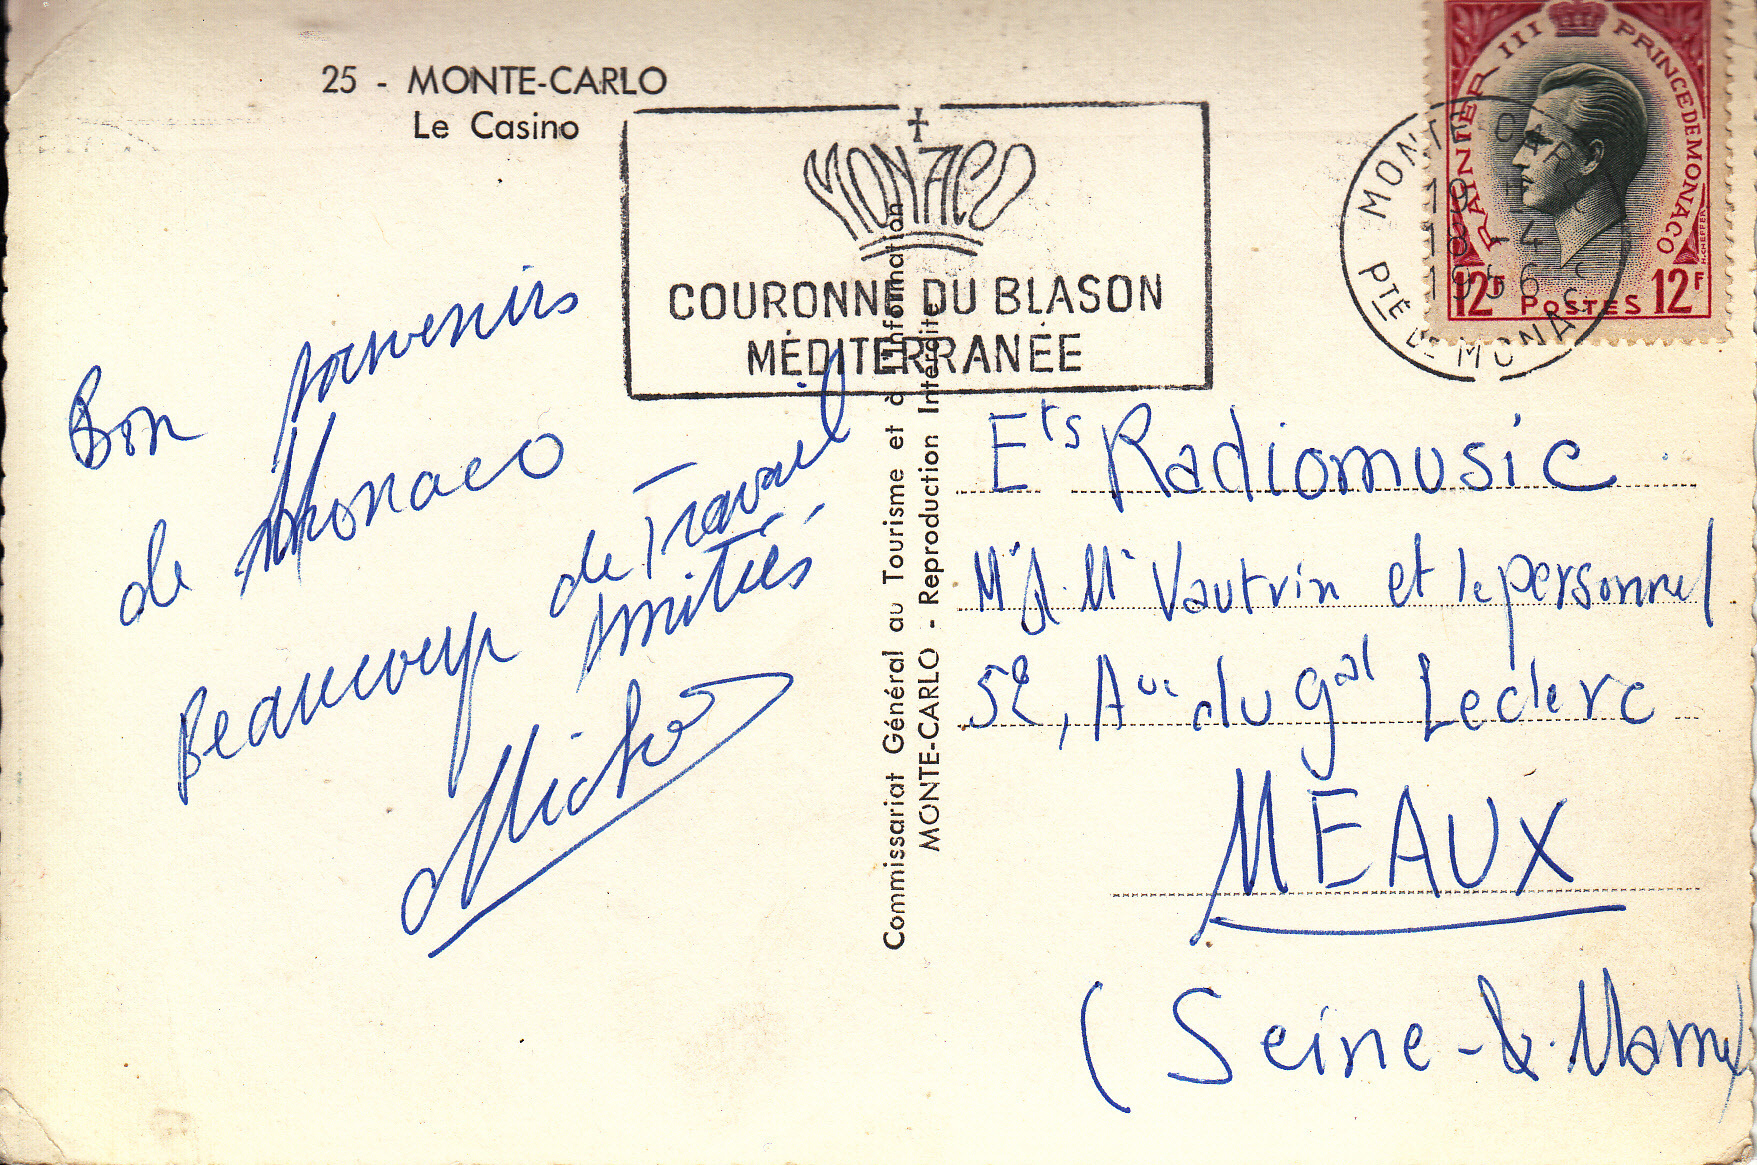 25 - MONTE-CARLO
Le Casino
MONACO
COURONNE DU BLASON
MÉDITERRANÉE
RAINIER III PRINCE DE MONACO
12F POSTES 12F
MONTE CARLO
19 H
18 -4
1956
PTÉ DE MONACO
Bon souvenirs
de Monaco
Beaucoup de Travail
Amitiés
Commissariat Général au Tourisme et à l'Information
MONTE-CARLO - Reproduction Interdite
Ets Radiomusic
Mr Vautrin et le personnel
52, Aue du Gal Leclerc
MEAUX
(Seine-&-Marne)